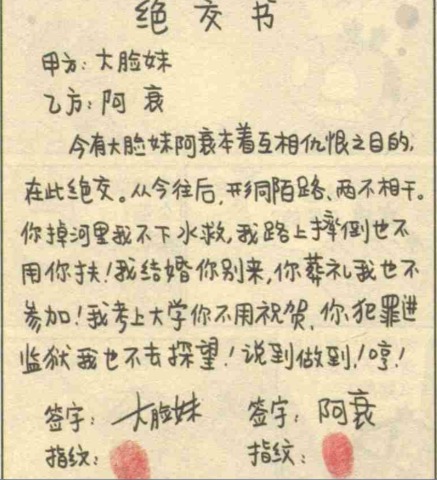 绝交书
甲方：大脸妹
乙方：阿衰
今有大脸妹阿衰本着互相仇恨之目的，
在此绝交。从今往后，形同陌路、两不相干。
你掉河里我不下水救，我路上摔倒也不
用你扶！我结婚你别来，你葬礼我也不
参加！我考上大学你不用祝贺，你犯罪进
监狱我也不去探望！说到做到！哼！
签字：大脸妹 签字：阿衰
指纹： 指纹：